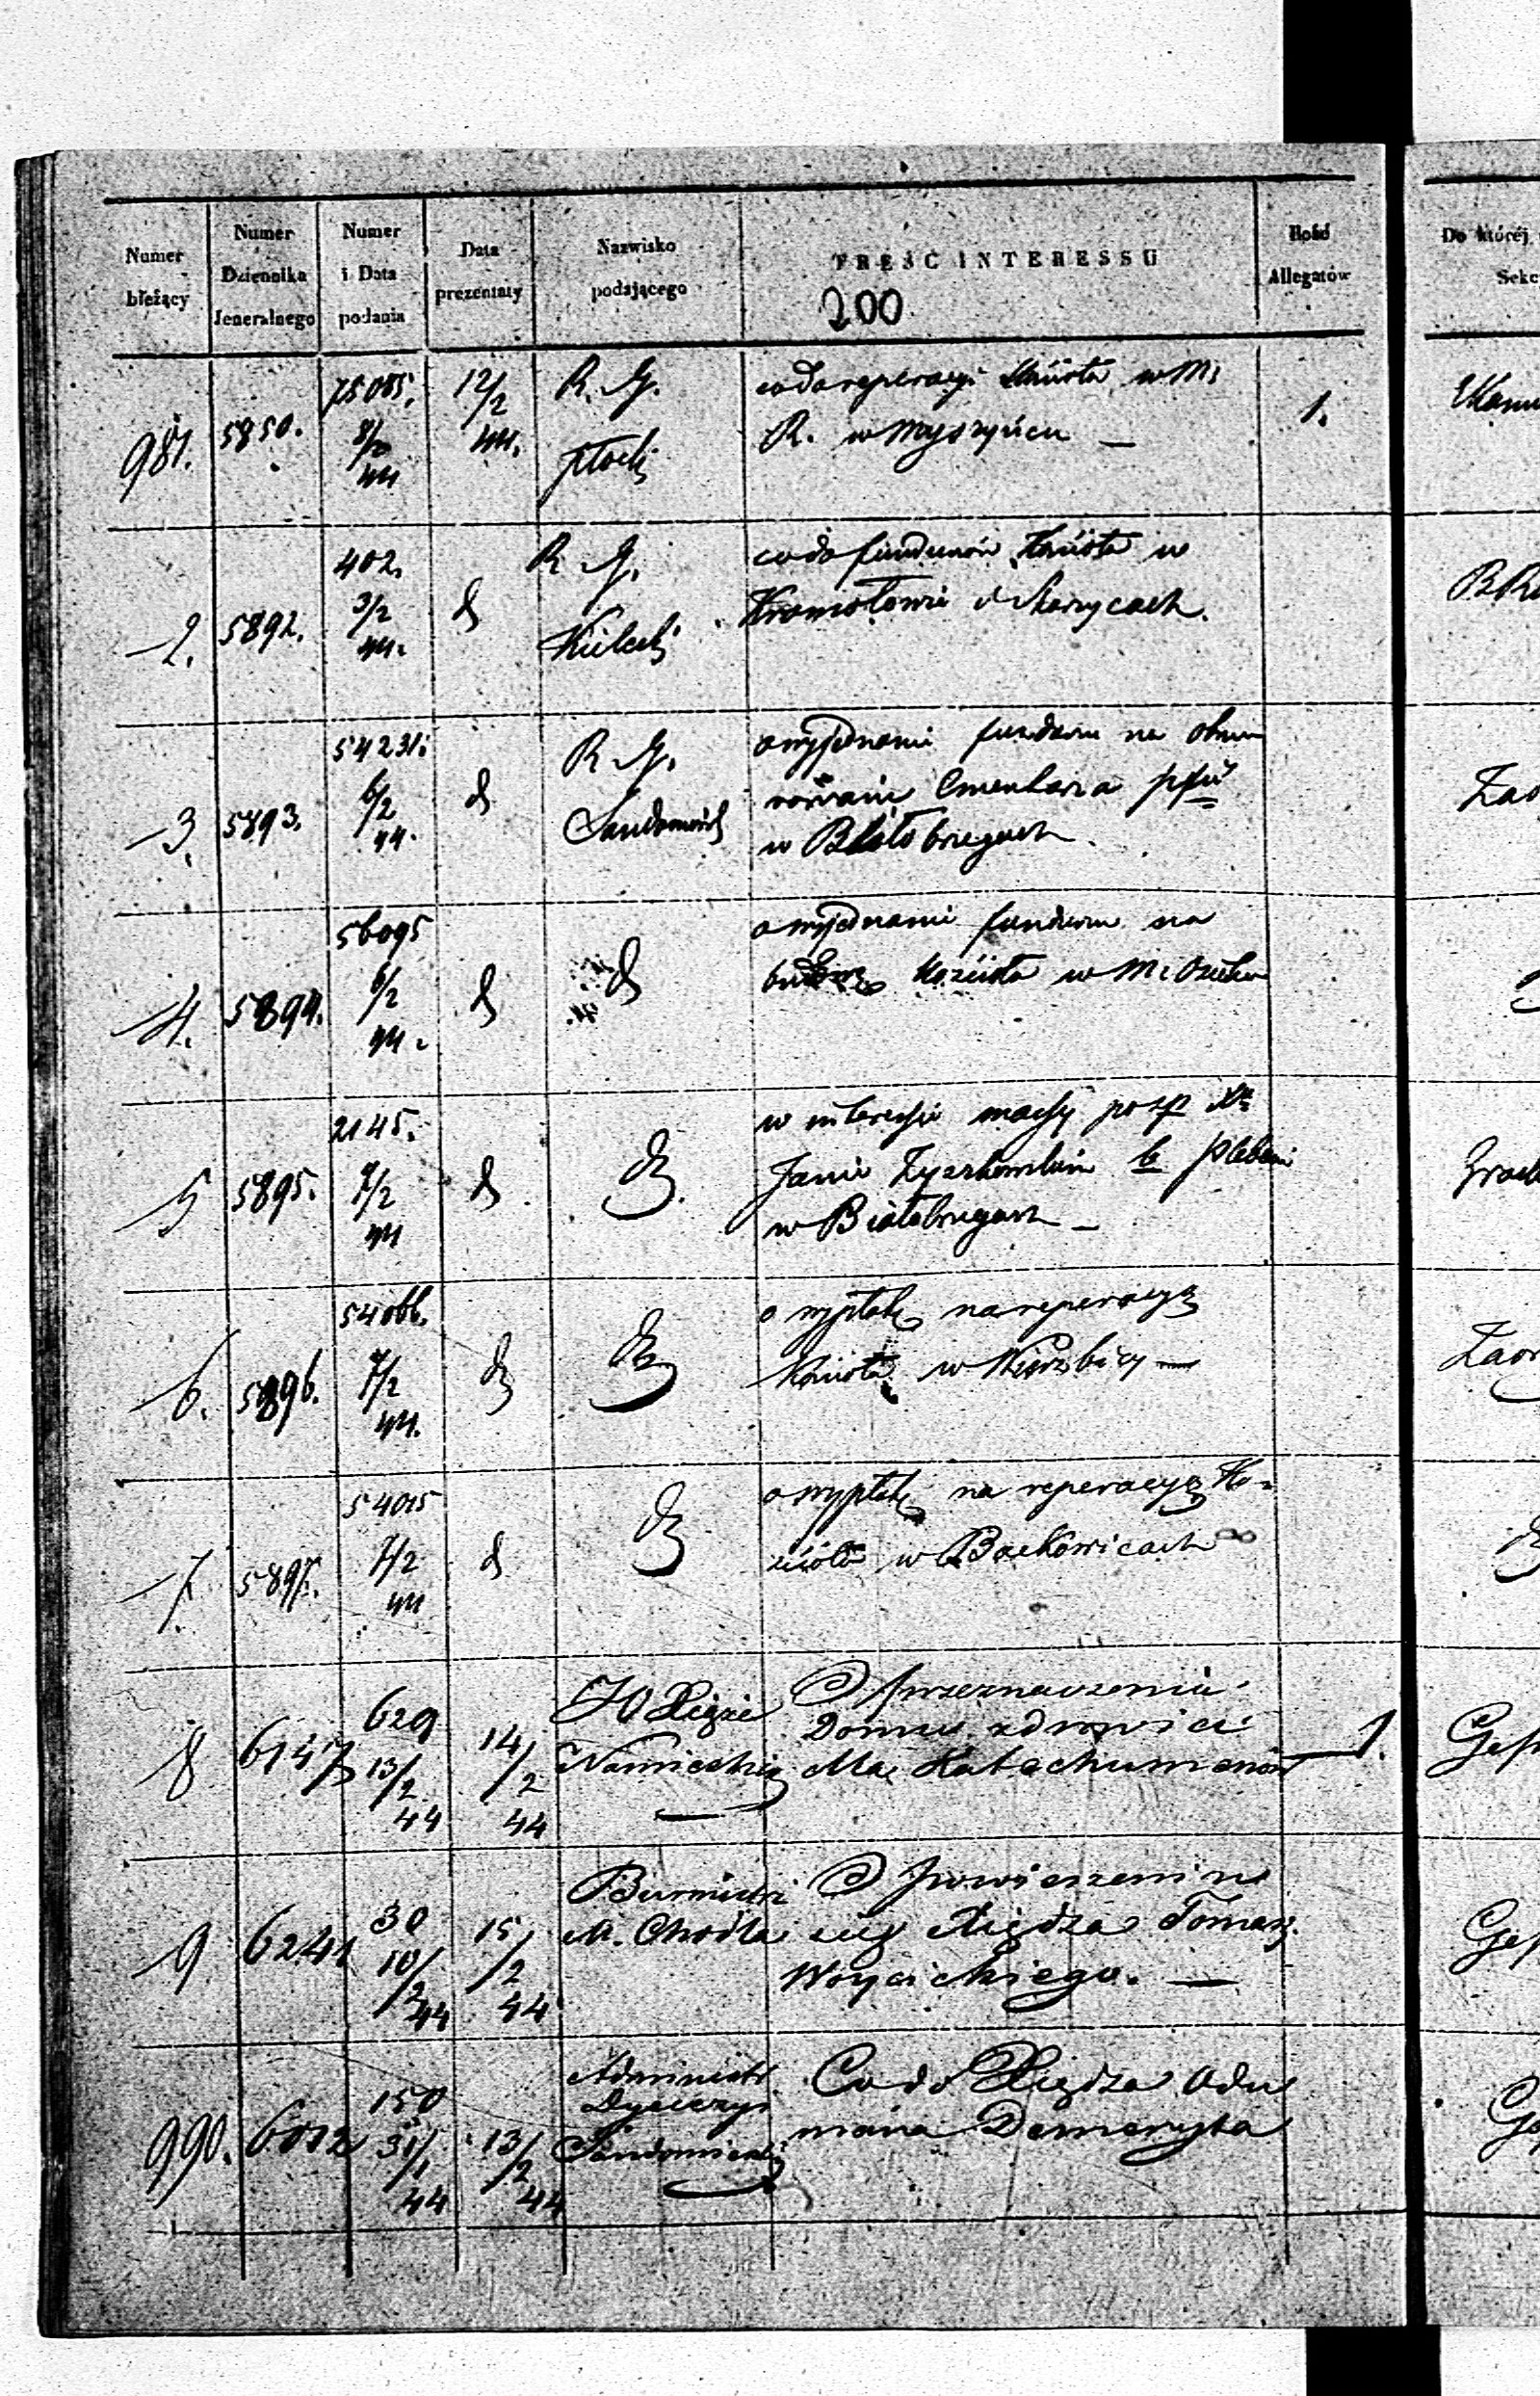 Numer bieżący
Numer Dziennika Jeneralnego
Numer i Data podania
Data prezentaty
Nazwisko podającego
TREŚĆ INTERESSU
Ilość Allegatów
Do której
Sekc
200
981. 5850. 75085. 8/2 44 12/2 44. R. G. Płocki
co do reperacyi Kościoła w M;
R. w Myszyńcu —
1.
2. 5892. 402. 3/2 44. d R. G. Kielecki
co do funduszów Kościoła w
Kromołowie i Skarzycach.
3. 5893. 54231. 6/2 44. d R. G. Sandomirski
o wyjednanie funduszu na obmu
rowanie Cmentarza
w Białobrzegach
4. 5894. 56095 6/2 44. d d
o wyjednanie funduszu na
budowę Kościoła w M.
5 5895. 2145. 7/2 44 d d.
w interesie massy po
Janie b Plebanie
w Białobrzegach —
6. 5896. 54066. 7/2 44. d d
o wypłatę na reperacyą
Kościoła w Wierzbicy —
7. 5897. 54015 7/2 44 d d
o wypłatę na reperacyą Ko-
ścioła w Baćkowicach
8 6147 629 13/2 44 14/2 44
O przeznaczenie
Domu zdrowia
dla Katechumenów
1.
9 6241 30 10/2 44 15/2 44 Burmistrz M. Chodla
O powieszeniu
się Xiędza Tomasz.
Woycickiego. —
990. 6012 150 31/1 44 13/2 44 Administr. Dyecezyi Sandomierski
Co do Xiędza Odu
mana Demeryta